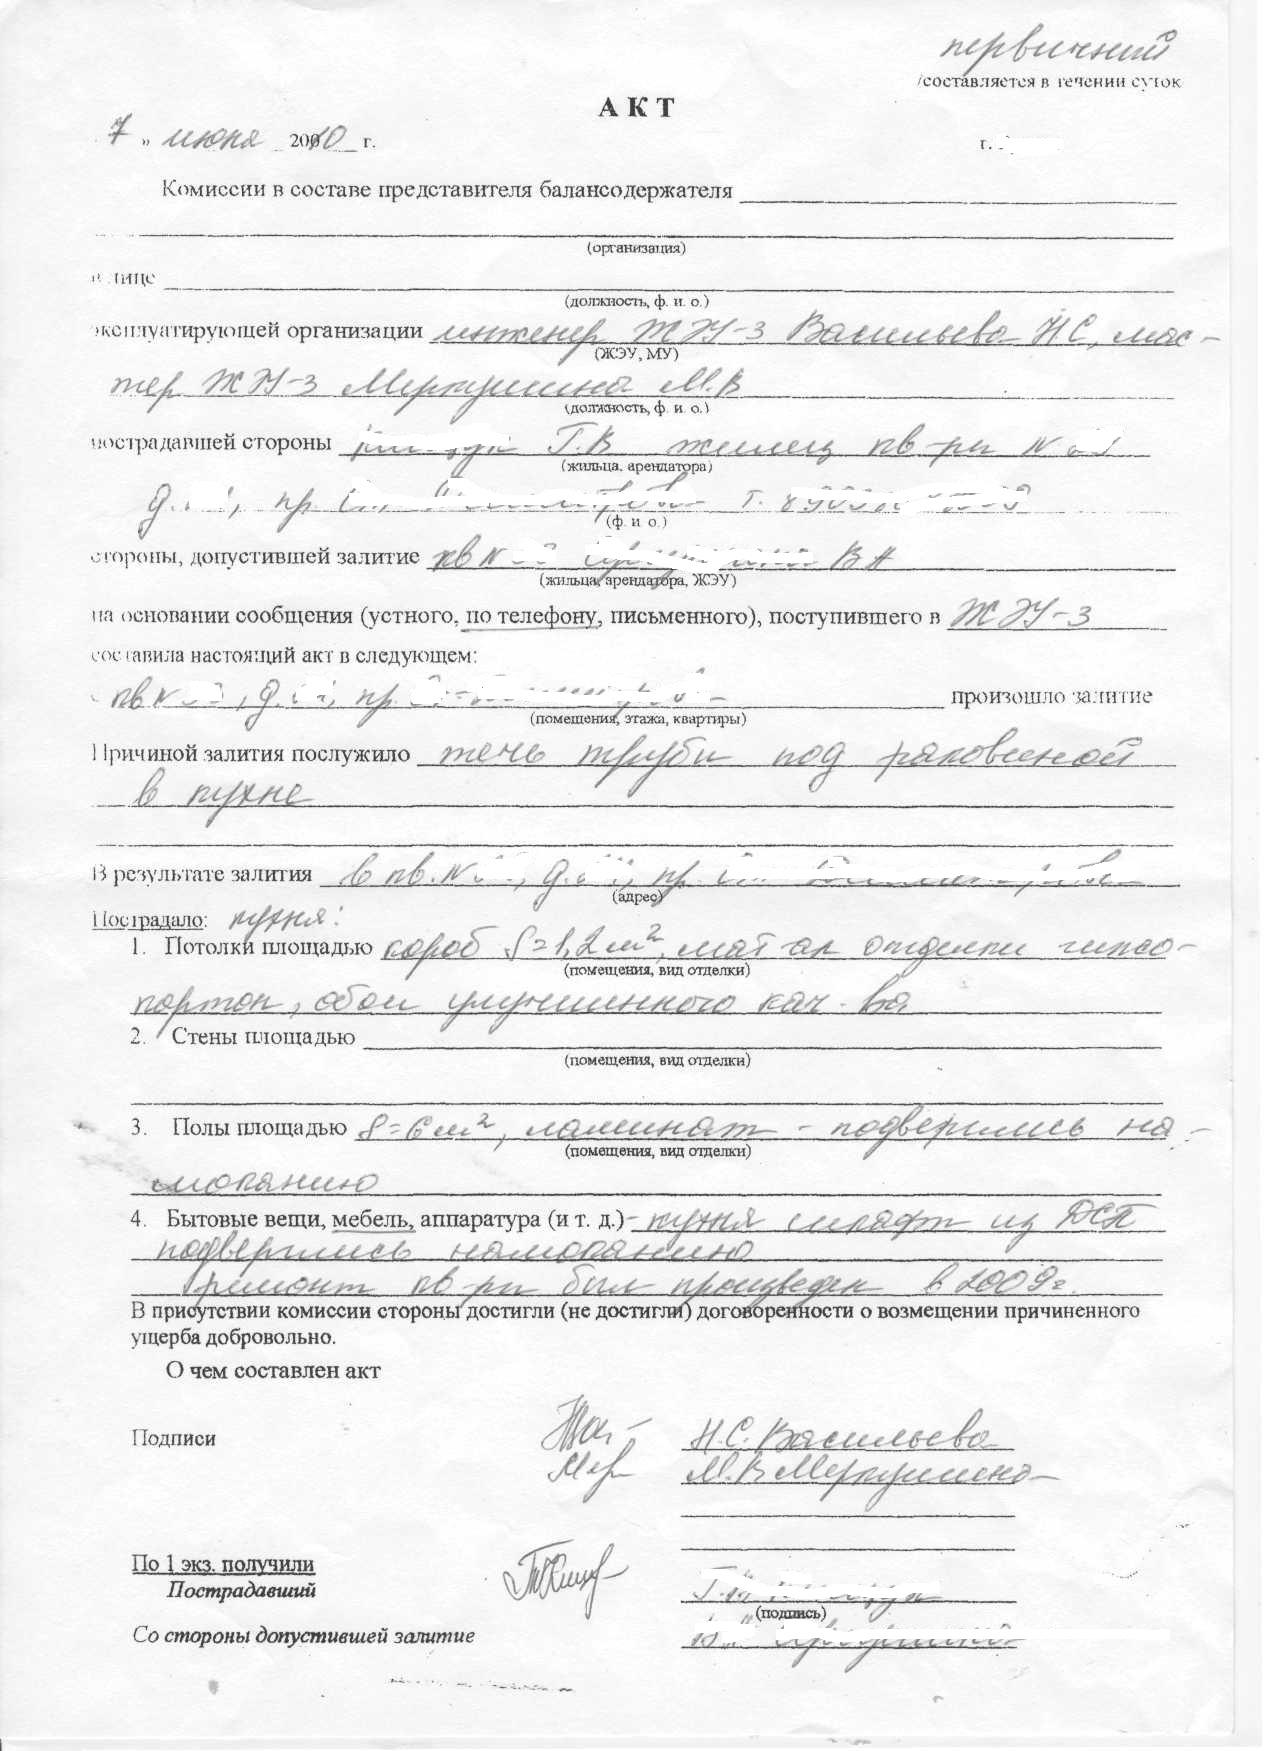 первичный
/составляется в течении суток
АКТ
7 » июня 2010 г.
г.
Комиссии в составе представителя балансодержателя
(организация)
в лице
(должность, ф. и. о.)
эксплуатирующей организации инженер ЖЭУ-3 Васильева Н С, мас-
(ЖЭУ, МУ)
тер ЖЭУ-3 Меркушина М.В
(должность, ф. и. о.)
пострадавшей стороны Г.В жилец кв-ры №
(жильца, арендатора)
д. , пр. т.
(ф. и. о.)
стороны, допустившей залитие кв № В А
(жильца, арендатора, ЖЭУ)
на основании сообщения (устного, по телефону, письменного), поступившего в ЖЭУ-3
составила настоящий акт в следующем:
кв № , д. , пр. произошло залитие
(помещения, этажа, квартиры)
Причиной залития послужило течь трубы под раковиной
в кухне
В результате залития в кв. № , д. , пр.
(адрес)
Пострадало: кухня:
1. Потолки площадью короб S=1,2м², мат-ал отделки гипсо-
(помещения, вид отделки)
картон, обои улучшенного кач-ва
2. Стены площадью
(помещения, вид отделки)
3. Полы площадью S=6м², ламинат - подверглись на-
(помещения, вид отделки)
моканию
4. Бытовые вещи, мебель, аппаратура (и т. д.)- кухня шкафт из ДСП
подверглись намоканию
ремонт кв-ры был произведен в 2009г.
В присутствии комиссии стороны достигли (не достигли) договоренности о возмещении причиненного
ущерба добровольно.
О чем составлен акт
Подписи Н.С. Васильева
М.В Меркушина
По 1 экз. получили
Пострадавший
(подпись)
Со стороны допустившей залитие